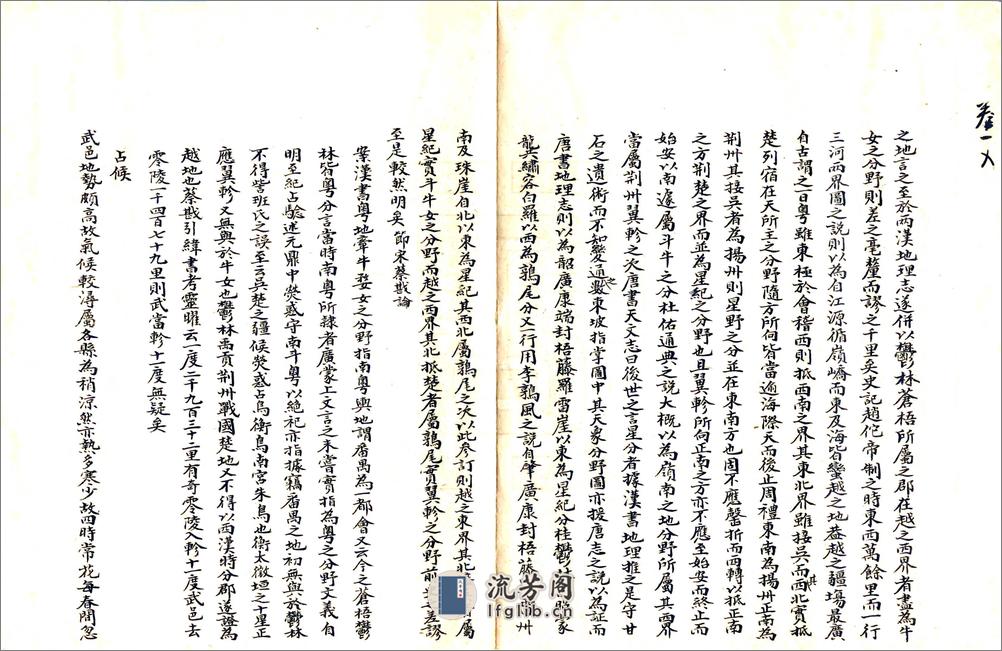 卷一
之地言之至於兩漢地理志遂併以鬱林蒼梧所屬之郡在越之西界者盡為牛
女之分野則差之毫釐而謬之千里矣史記趙佗帝制之時東西萬餘里而一行
三河兩界圖之說則以為自江源循嶺嶠而東及海皆蠻越之地蓋越之疆場最廣
自古謂之曰粵雖東極於會稽西則抵西南之界其東北界雖接吳而其西北實抵
楚列宿在天所主之分野隨方所向皆當適海際天而後止周禮東南為揚州正南為
荆州其接吳者為揚州則星野之分並在東南方也固不應磬折而西轉以抵正南
之方荆楚之界而並為星紀之分野也且翼軫所向正南之方亦不應至始安而終止而
始安以南遽屬斗牛之分杜佑通典之說大概以為嶺南之地分野所屬其兩界
當屬荆州翼軫之次唐書天文志曰後世之言星分者據漢書地理推之是守甘
石之遺術而不知變通之數東坡指掌圖中其天象分野圖亦援唐志之說以為証而
唐書地理志則以為韶廣康端封梧藤羅雷崖以東為星紀分桂鬱
龍共繡容白羅以西為鶉尾分又一行用李鶉風之說自肇廣康封梧藤
南及珠崖自北以東為星紀其西北屬鶉尾之次以此參訂則越之東界其北
星紀實斗牛女之分野而越之西界其北抵楚者屬鶉尾實翼軫之分野前差謬
至是較然明矣 節宋蔡戡論
案漢書粵地牽牛婺女之分野指南粵輿地謂番禺為一都會又云今之蒼梧鬱
林皆粵分言當時南粵所隸者廣蒙上文言之未嘗實指為粵之分野文義自
明至紀占驗述元鼎中熒惑守南斗粵以絕祀亦指據竊番禺之地初無與於鬱林
不得訾班氏之誤至云吳楚之疆候熒惑占鳥衡鳥南宮朱鳥也衡太微垣之十星正
應翼軫又無與於牛女也鬱林禹貢荆州戰國楚地又不得以西漢時分郡遂證為
越地也蔡戡引緯書考靈曜云一度二千九百三十二里有奇零陵入軫十一度武邑去
零陵一千四百七十九里則武當軫十二度無疑矣
占候
武邑地勢頗高故氣候較潯屬各縣為稍涼然亦熱多寒少故四時常花每春間忽
流芳阁
lfglib.cn